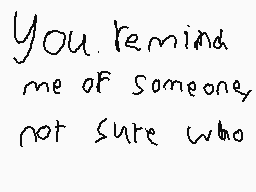 You. remind
me of someone,
not sure who